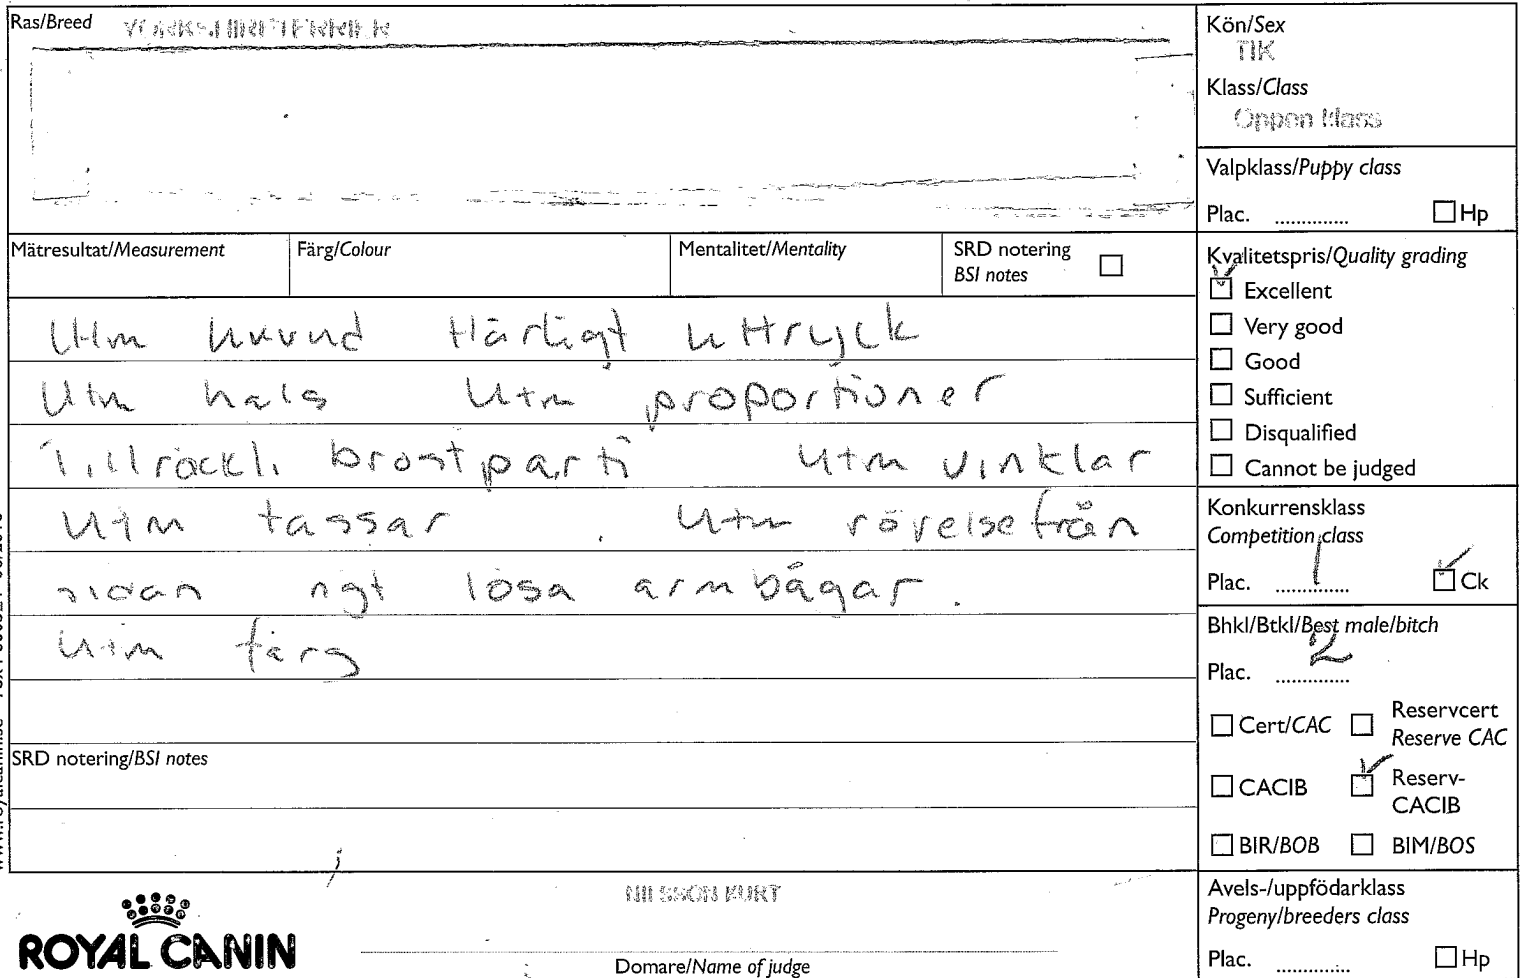 Ras/Breed YORKSHIRETERRIER
Kön/Sex
TIK
Klass/Class
Öppen klass
Valpklass/Puppy class
Plac. .............. Hp
Mätresultat/Measurement Färg/Colour Mentalitet/Mentality SRD notering
BSI notes
Kvalitetspris/Quality grading
Excellent
Very good
Good
Sufficient
Disqualified
Cannot be judged
Utm huvud Härligt uttryck
Utm hals Utm proportioner
Tillräckl. bröstparti Utm vinklar
Utm tassar. Utm rörelse från
sidan ngt lösa armbågar.
Utm färg
Konkurrensklass
Competition class
Plac. 1 Ck
Bhkl/Btkl/Best male/bitch
Plac. 2
Cert/CAC Reservcert
Reserve CAC
CACIB Reserv-
CACIB
BIR/BOB BIM/BOS
SRD notering/BSI notes
NILSSON KURT
ROYAL CANIN
Domare/Name of judge
Avels-/uppfödarklass
Progeny/breeders class
Plac. .............. Hp